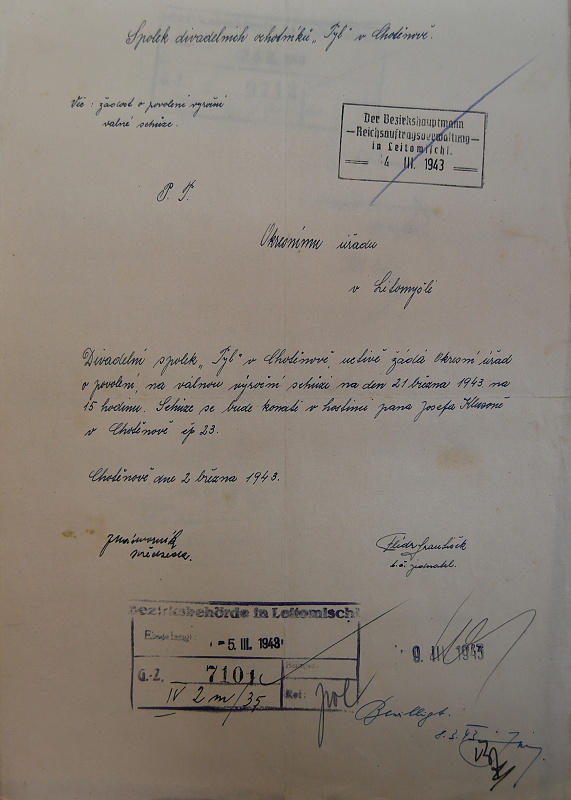 Spolek divadelních ochotníků „Tyl" v Chotěnově.
Věc: žádost o povolení výroční
valné schůze.
Der Bezirkshauptmann
—Reichsauftragsverwaltung—
in Leitomischl.
4 III. 1943
P. T.
Okresnímu úřadu
v Litomyšli
Divadelní spolek „Tyl" v Chotěnově, uctivě žádá Okresní úřad
o povolení, na valnou výroční schůzi na den 21 března 1943 na
15 hodinu. Schůze se bude konati v hostinci pana Josefa Klusoně
v Chotěnově čp 23.
Chotěnově dne 2 března 1943.
předseda.
František
t.č. jednatel.
Bezirksbehörde in Leitomischl
Eingelangt: -5. III. 1943
G.-Z. 7101
IV 2 m/35
Ref: pol
9. III. 1943
Bewilligt.
8.3.43